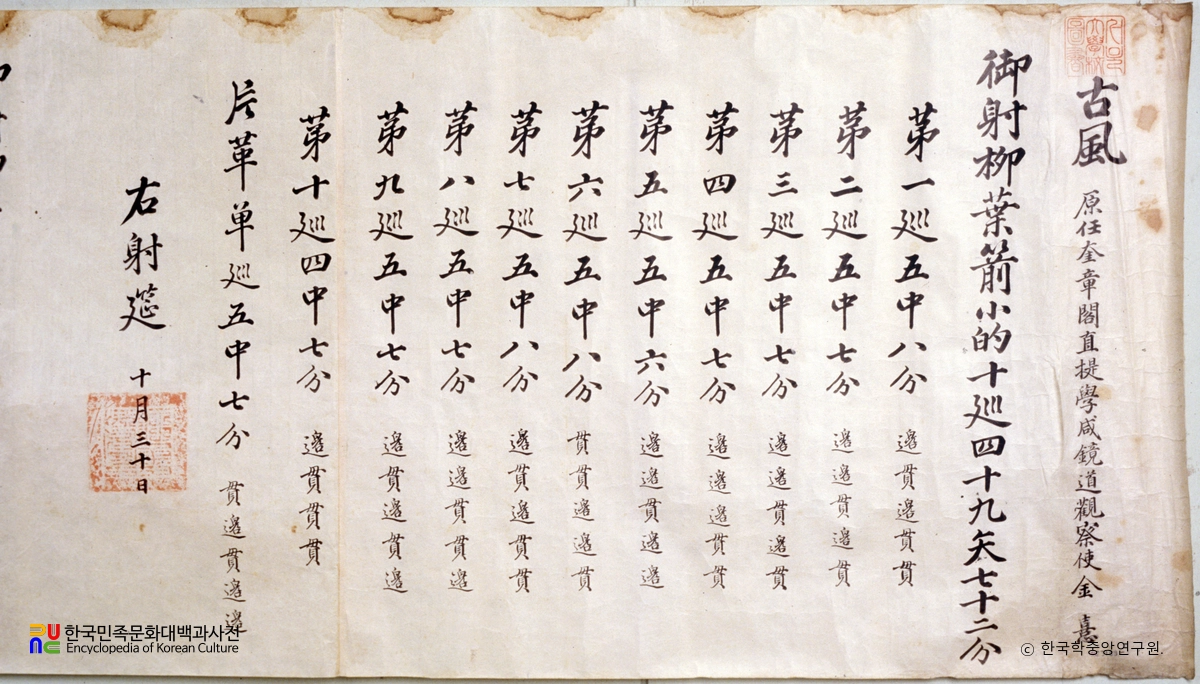 古風 原任奎章閣直提學咸鏡道觀察使金 憙
御射柳葉箭小的十巡四十九矢七十二分
第一巡五中八分 邊貫邊貫貫
第二巡五中七分 邊邊貫邊貫
第三巡五中七分 邊邊貫邊貫
第四巡五中七分 邊邊邊貫貫
第五巡五中六分 邊邊貫邊邊
第六巡五中八分 貫貫邊邊貫
第七巡五中八分 邊貫邊貫貫
第八巡五中七分 邊邊貫貫邊
第九巡五中七分 邊貫邊貫邊
第十巡四中七分 邊貫貫貫
片革单巡五中七分 貫邊貫邊邊
右射筵 十月三十日
한국민족문화대백과사전
Encyclopedia of Korean Culture
ⓒ 한국학중앙연구원.